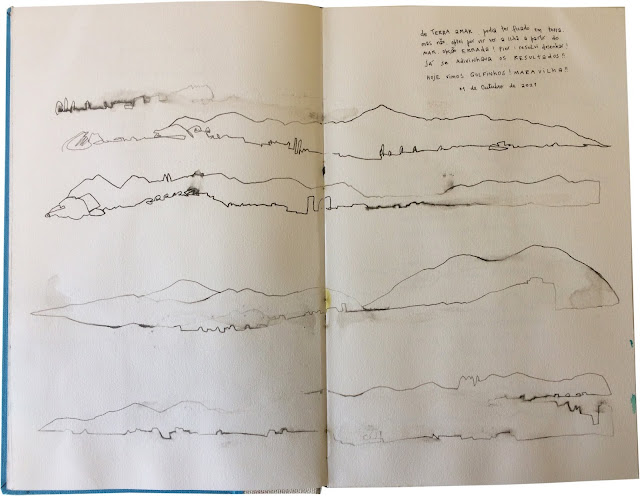 de TERRA AMAR podia ter ficado em terra
mas não optei por vir ver a ilha a partir do
MAR. opção ERRADA! Pior: resolvi desenhar!
Já se ADIVINHAVA OS RESULTADOS!!
HOJE vimos GOLFINHOS! MARAVILHA!!
de Outubro de 2021